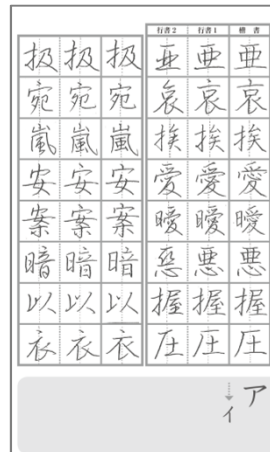 楷書 行書1 行書2
亜 亜 亜
哀 哀 哀
挨 挨 挨
愛 愛 愛
曖 曖 曖
悪 悪 悪
握 握 握
圧 圧 圧
扱 扱 扱
宛 宛 宛
嵐 嵐 嵐
安 安 安
案 案 案
暗 暗 暗
以 以 以
衣 衣 衣
ア
イ